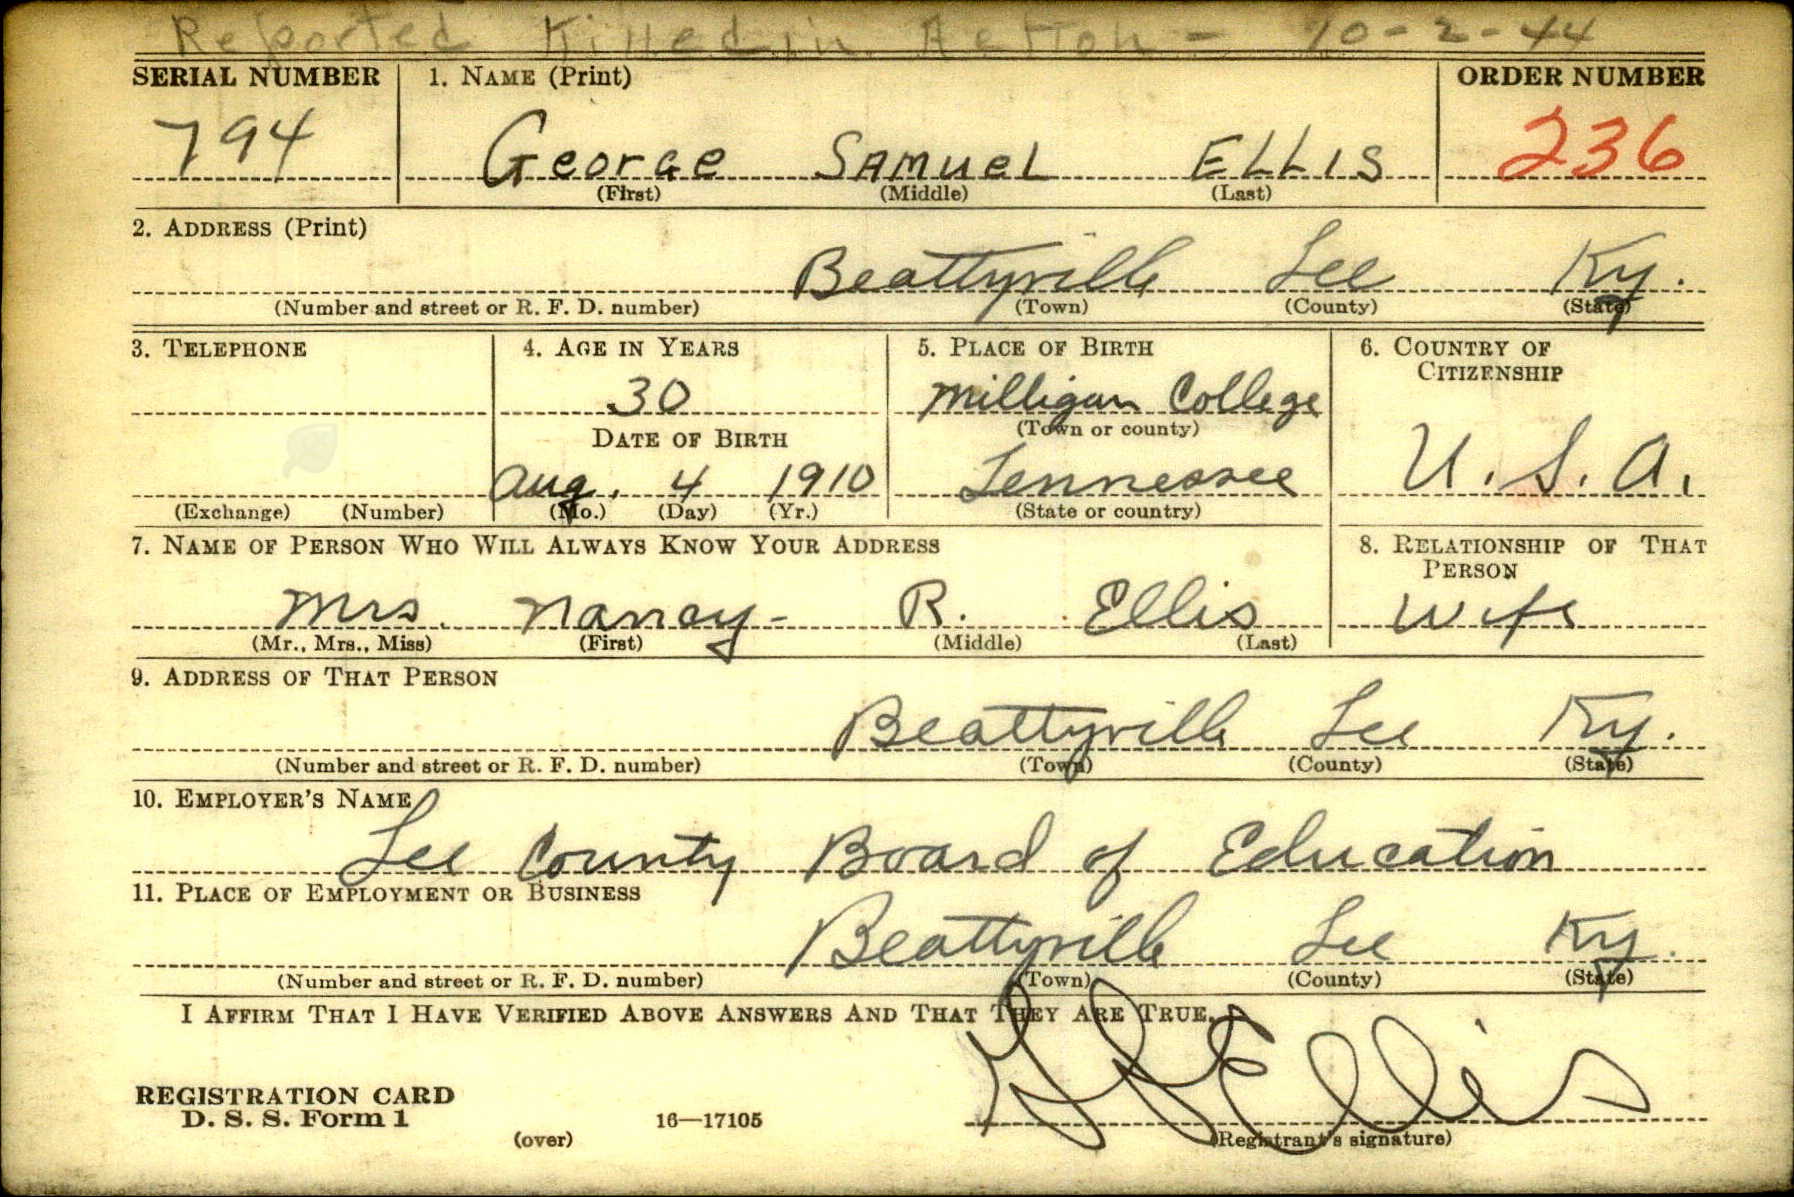 Reported Killed in Action - 10-2-44
SERIAL NUMBER 1. NAME (Print) ORDER NUMBER
794 George Samuel ELLIS 236
(First) (Middle) (Last)
2. ADDRESS (Print)
Beattyville Lee Ky.
(Number and street or R. F. D. number) (Town) (County) (State)
3. TELEPHONE 4. AGE IN YEARS 5. PLACE OF BIRTH 6. COUNTRY OF CITIZENSHIP
30 Milligan College
(Town or county)
DATE OF BIRTH
Aug. 4 1910 Tennessee U. S. A.
(Exchange) (Number) (Mo.) (Day) (Yr.) (State or country)
7. NAME OF PERSON WHO WILL ALWAYS KNOW YOUR ADDRESS 8. RELATIONSHIP OF THAT PERSON
Mrs. Nancy - R. Ellis Wife
(Mr., Mrs., Miss) (First) (Middle) (Last)
9. ADDRESS OF THAT PERSON
Beattyville Lee Ky.
(Number and street or R. F. D. number) (Town) (County) (State)
10. EMPLOYER'S NAME
Lee County Board of Education
11. PLACE OF EMPLOYMENT OR BUSINESS
Beattyville Lee Ky.
(Number and street or R. F. D. number) (Town) (County) (State)
I AFFIRM THAT I HAVE VERIFIED ABOVE ANSWERS AND THAT THEY ARE TRUE.
G S Ellis
REGISTRATION CARD
D. S. S. Form 1 16—17105
(over) (Registrant's signature)